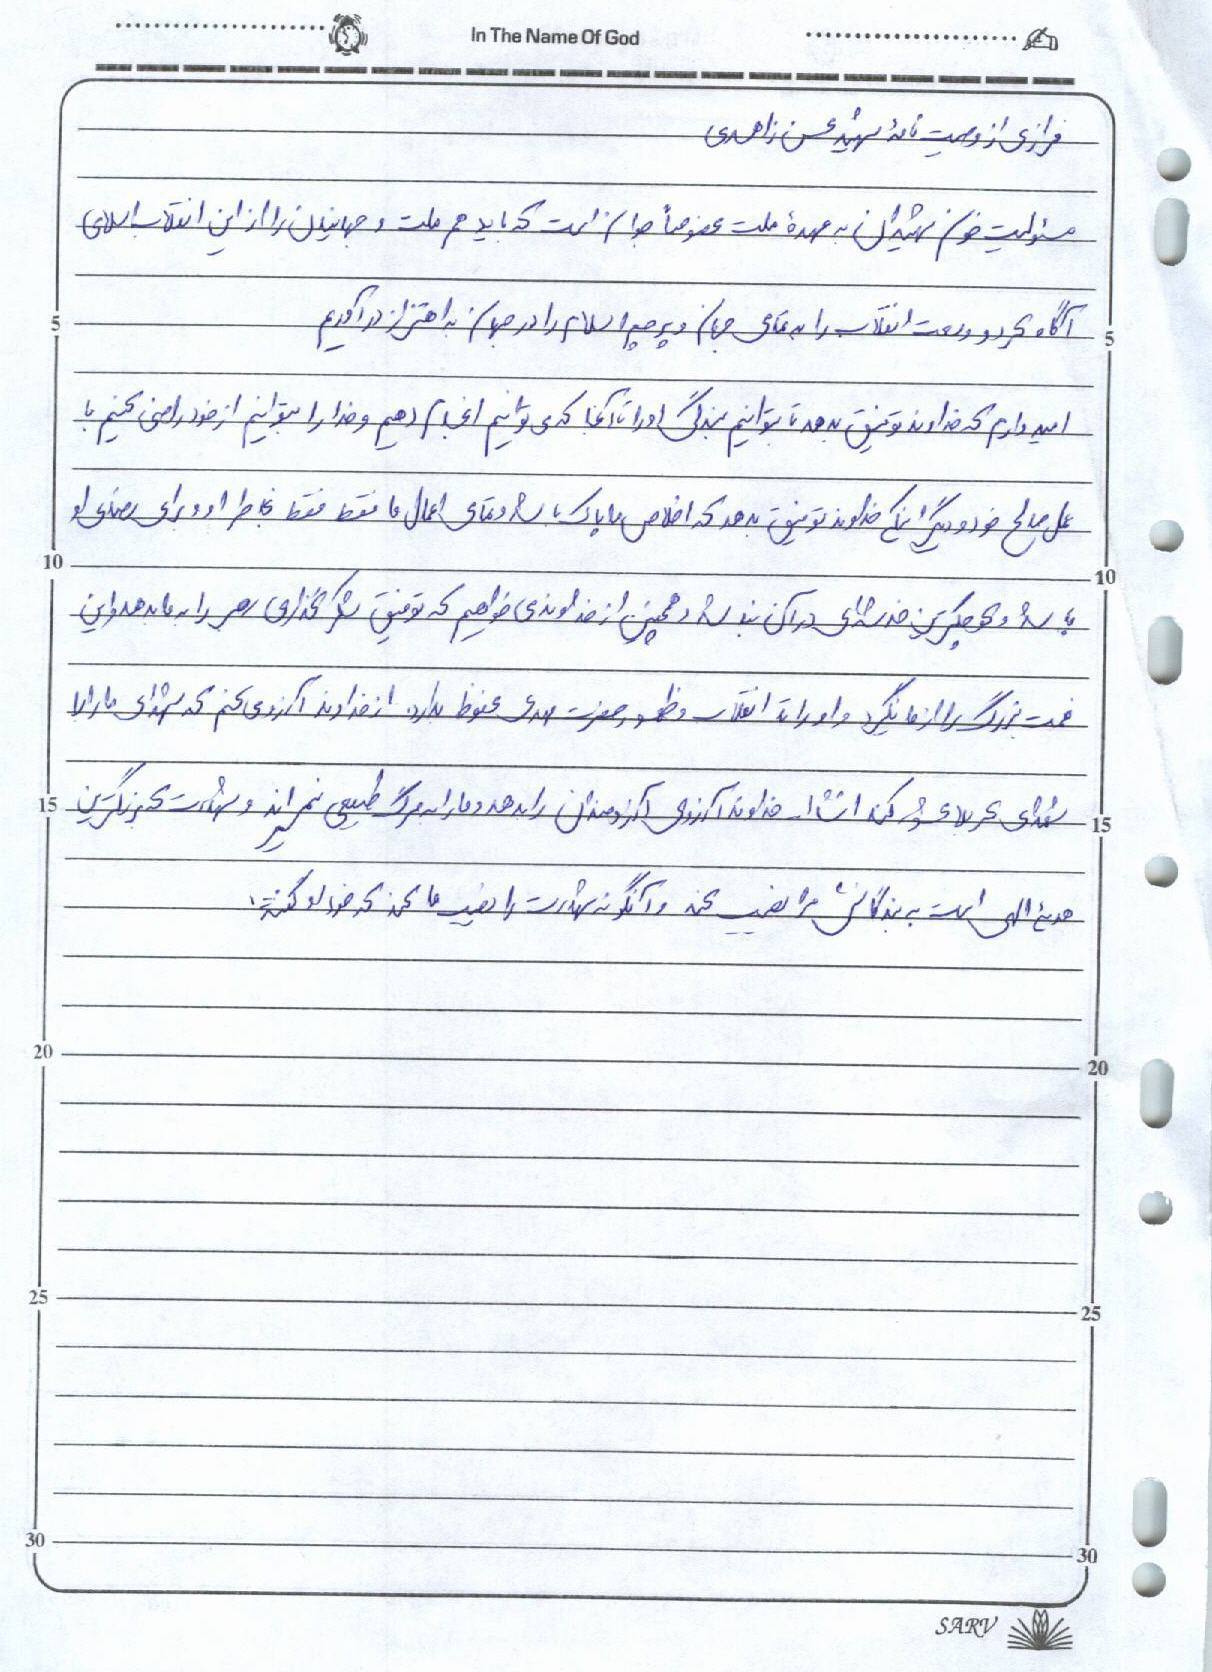 In The Name Of God
فرازی از وصیت نامهٔ شهید محسن زاهدی
مسئولیت خون شهیدان به عهدهٔ ملت خصوصاً جوانان است که باید هم ملت و جهانیان را از این انقلاب اسلامی
5 آگاه کرد و وسعت انقلاب را به تمامی جهان و پرچم اسلام را در جهان به اهتزاز در آوریم 5
امیدوارم که خداوند توفیق بدهد تا بتوانیم بندگی او را تا آنجا که می توانیم انجام دهیم و خدا را بتوانیم از خود راضی کنیم با
عمل صالح خود و دیگر اینکه خداوند توفیق بدهد که اخلاص ما پاک باشد و تمامی اعمال ما فقط فقط بخاطر او و برای رضای او
10 10
باشد و کوچکترین خدشه‌ای در آن نباشد و همچنین از خداوند می خواهیم که توفیق شکرگذاری رهبر را به ما بدهد و این
نعمت بزرگ را از ما نگیرد و او را تا انقلاب و ظهور حضرت مهدی محفوظ بدارد. از خداوند آرزو می کنم که شهدای ما را با
15 شهدای کربلا محشور کند انشاا... خداوند آرزوی آرزومندان را بدهد و ما را به مرگ طبیعی نمیراند و شهادت که بزرگترین 15
هدیهٔ الهی است به بندگانش نصیب کند و آنگونه شهادت را نصیب ما کند که خود او
20 20
25 25
30 30
SARV